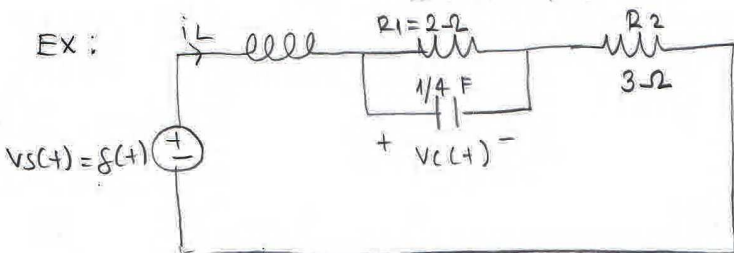 EX :
iL
R1=2Ω
R2
3Ω
1/4 F
+ Vc(t) -
Vs(t) = δ(t)
+
-